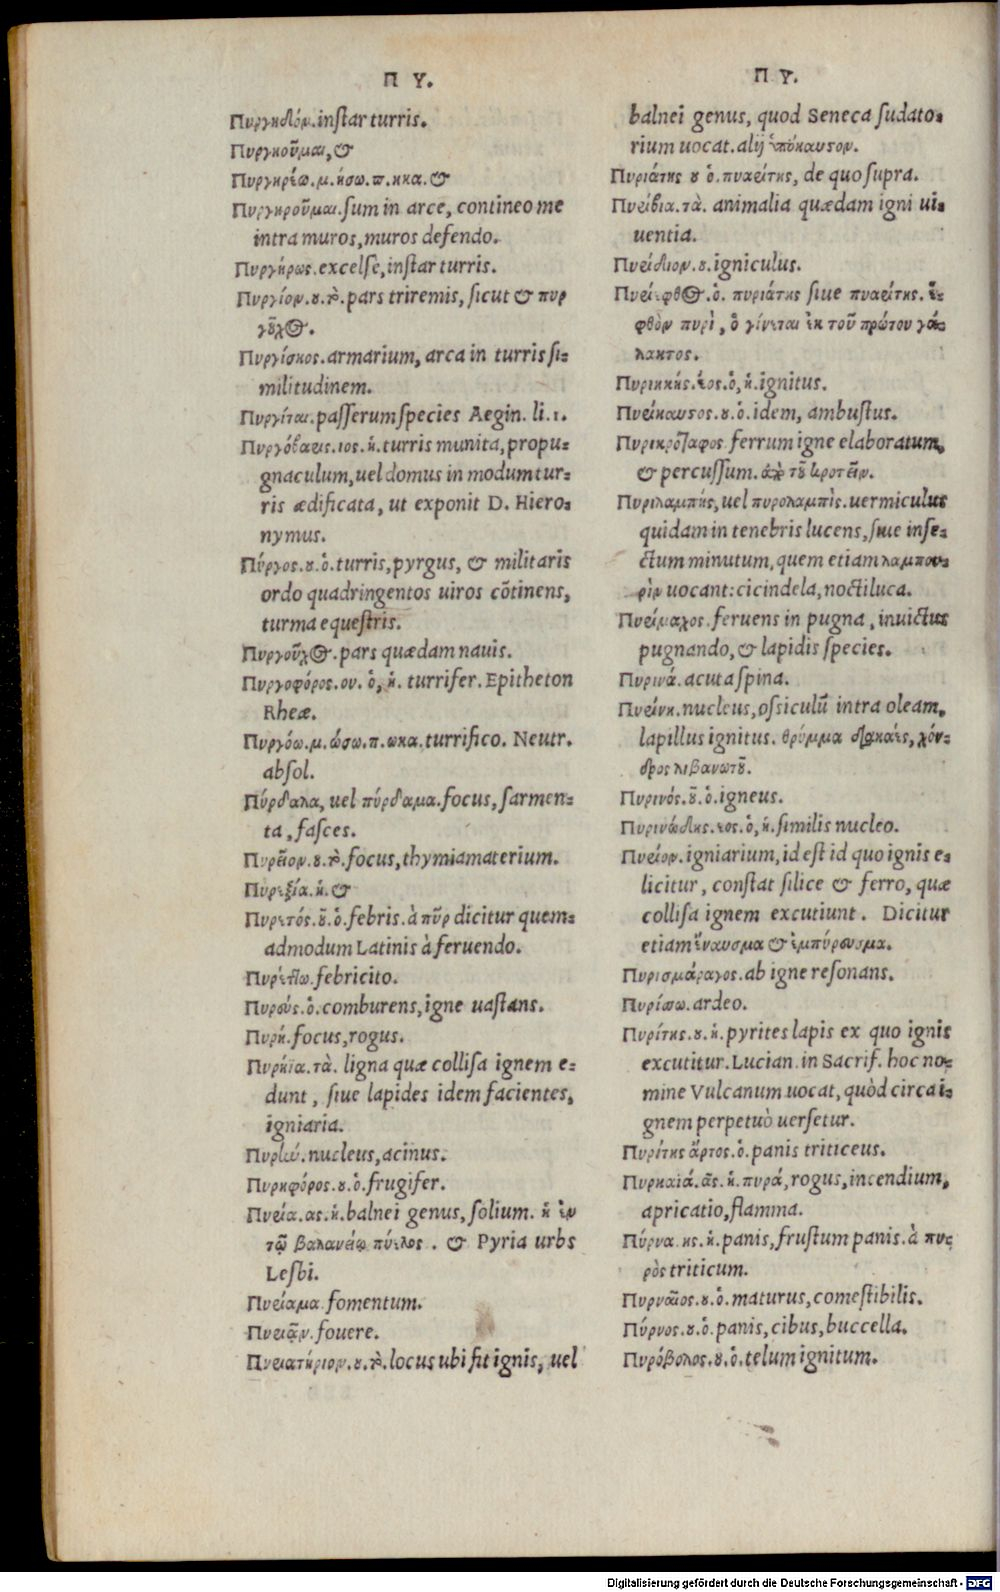 Π Υ.
Πυργηδόν. instar turris.
Πυργηοῦμαι, &
Πυργηρέω. μ. ήσω. π. ηκα. &
Πυργηροῦμαι. sum in arce, contineo me
intra muros, muros defendo.
Πυργήρως. excelse, instar turris.
Πυργίον. ου. τὸ. pars triremis, sicut & πυρ
γοῦχος.
Πυργίσκος. armarium, arca in turris si-
militudinem.
Πυργίται. passerum species Aegin. li. 1.
Πυργόβαρις. ιος. ἡ. turris munita, propu-
gnaculum, uel domus in modum tur-
ris ædificata, ut exponit D. Hiero-
nymus.
Πύργος. ου. ὁ. turris, pyrgus, & militaris
ordo quadringentos uiros cõtinens,
turma equestris.
Πυργοῦχος. pars quædam nauis.
Πυργοφόρος. ου. ὁ, ἡ. turrifer. Epitheton
Rheæ.
Πυργόω. μ. ώσω. π. ωκα. turrifico. Neutr.
absol.
Πύρδαλα, uel πύρδαμα. focus, sarmen-
ta, fasces.
Πυρεῖον. ου. τὸ. focus, thymiamaterium.
Πυρεξία. ἡ. &
Πυρετός. οῦ. ὁ. febris. à πῦρ dicitur quem-
admodum Latinis à feruendo.
Πυρέττω. febricito.
Πυρεύς. ὁ. comburens, igne uastans.
Πυρή. focus, rogus.
Πυρήϊα. τὰ. ligna quæ collisa ignem e-
dunt, siue lapides idem facientes,
igniaria.
Πυρήν. nucleus, acinus.
Πυρηφόρος. ου. ὁ. frugifer.
Πυρία. ας. ἡ. balnei genus, solium. ἡ ἐν
τῷ βαλανείῳ πύελος. & Pyria urbs
Lesbi.
Πυρίαμα. fomentum.
Πυριᾷν. fouere.
Πυριατήριον. ου. τὸ. locus ubi fit ignis, uel
Π Υ.
balnei genus, quod Seneca sudato-
rium uocat. alij ὑπόκαυσον.
Πυριάτης ου ὁ. πυαρίτης, de quo supra.
Πυρίβια. τὰ. animalia quædam igni ui-
uentia.
Πυρίδιον. ου. igniculus.
Πυρίεφθος. ὁ. πυριάτης siue πυαρίτης. ἑ-
φθὸν πυρὶ, ὁ γίνεται ἐκ τοῦ πρώτου γά-
λακτος.
Πυριηκής. έος. ὁ, ἡ. ignitus.
Πυρίκαυσος. ου. ὁ. idem, ambustus.
Πυρικρόταφος. ferrum igne elaboratum,
& percussum. ἀπὸ τοῦ κροτεῖν.
Πυριλαμπής, uel πυρολαμπὶς. uermiculus
quidam in tenebris lucens, siue inse-
ctum minutum, quem etiam λαμπου-
ρὶν uocant: cicindela, noctiluca.
Πυρίμαχος. feruens in pugna, inuictus
pugnando, & lapidis species.
Πυρινά. acuta spina.
Πυρίνη. nucleus, ossiculũ intra oleam,
lapillus ignitus. θρύμμα διακαὲς, χόν-
δρος λιβανωτοῦ.
Πυρινός. οῦ. ὁ. igneus.
Πυρινώδης. εος. ὁ, ἡ. similis nucleo.
Πυρίον. igniarium, id est id quo ignis e-
licitur, constat silice & ferro, quæ
collisa ignem excutiunt. Dicitur
etiam ἔναυσμα & ἐμπύρευσμα.
Πυρισμάραγος. ab igne resonans.
Πυρίσω. ardeo.
Πυρίτης. ου. ἡ. pyrites lapis ex quo ignis
excutitur. Lucian. in Sacrif. hoc no-
mine Vulcanum uocat, quòd circa i-
gnem perpetuò uersetur.
Πυρίτης ἄρτος. ὁ. panis triticeus.
Πυρκαιά. ᾶς. ἡ. πυρά, rogus, incendium,
apricatio, flamma.
Πύρνα. ης. ἡ. panis, frustum panis. à πυ-
ρὸς triticum.
Πυρναῖος. ου. ὁ. maturus, comestibilis.
Πύρνος. ου. ὁ. panis, cibus, buccella.
Πυρόβολος. ου. ὁ. telum ignitum.
Digitalisierung gefördert durch die Deutsche Forschungsgemeinschaft - DFG